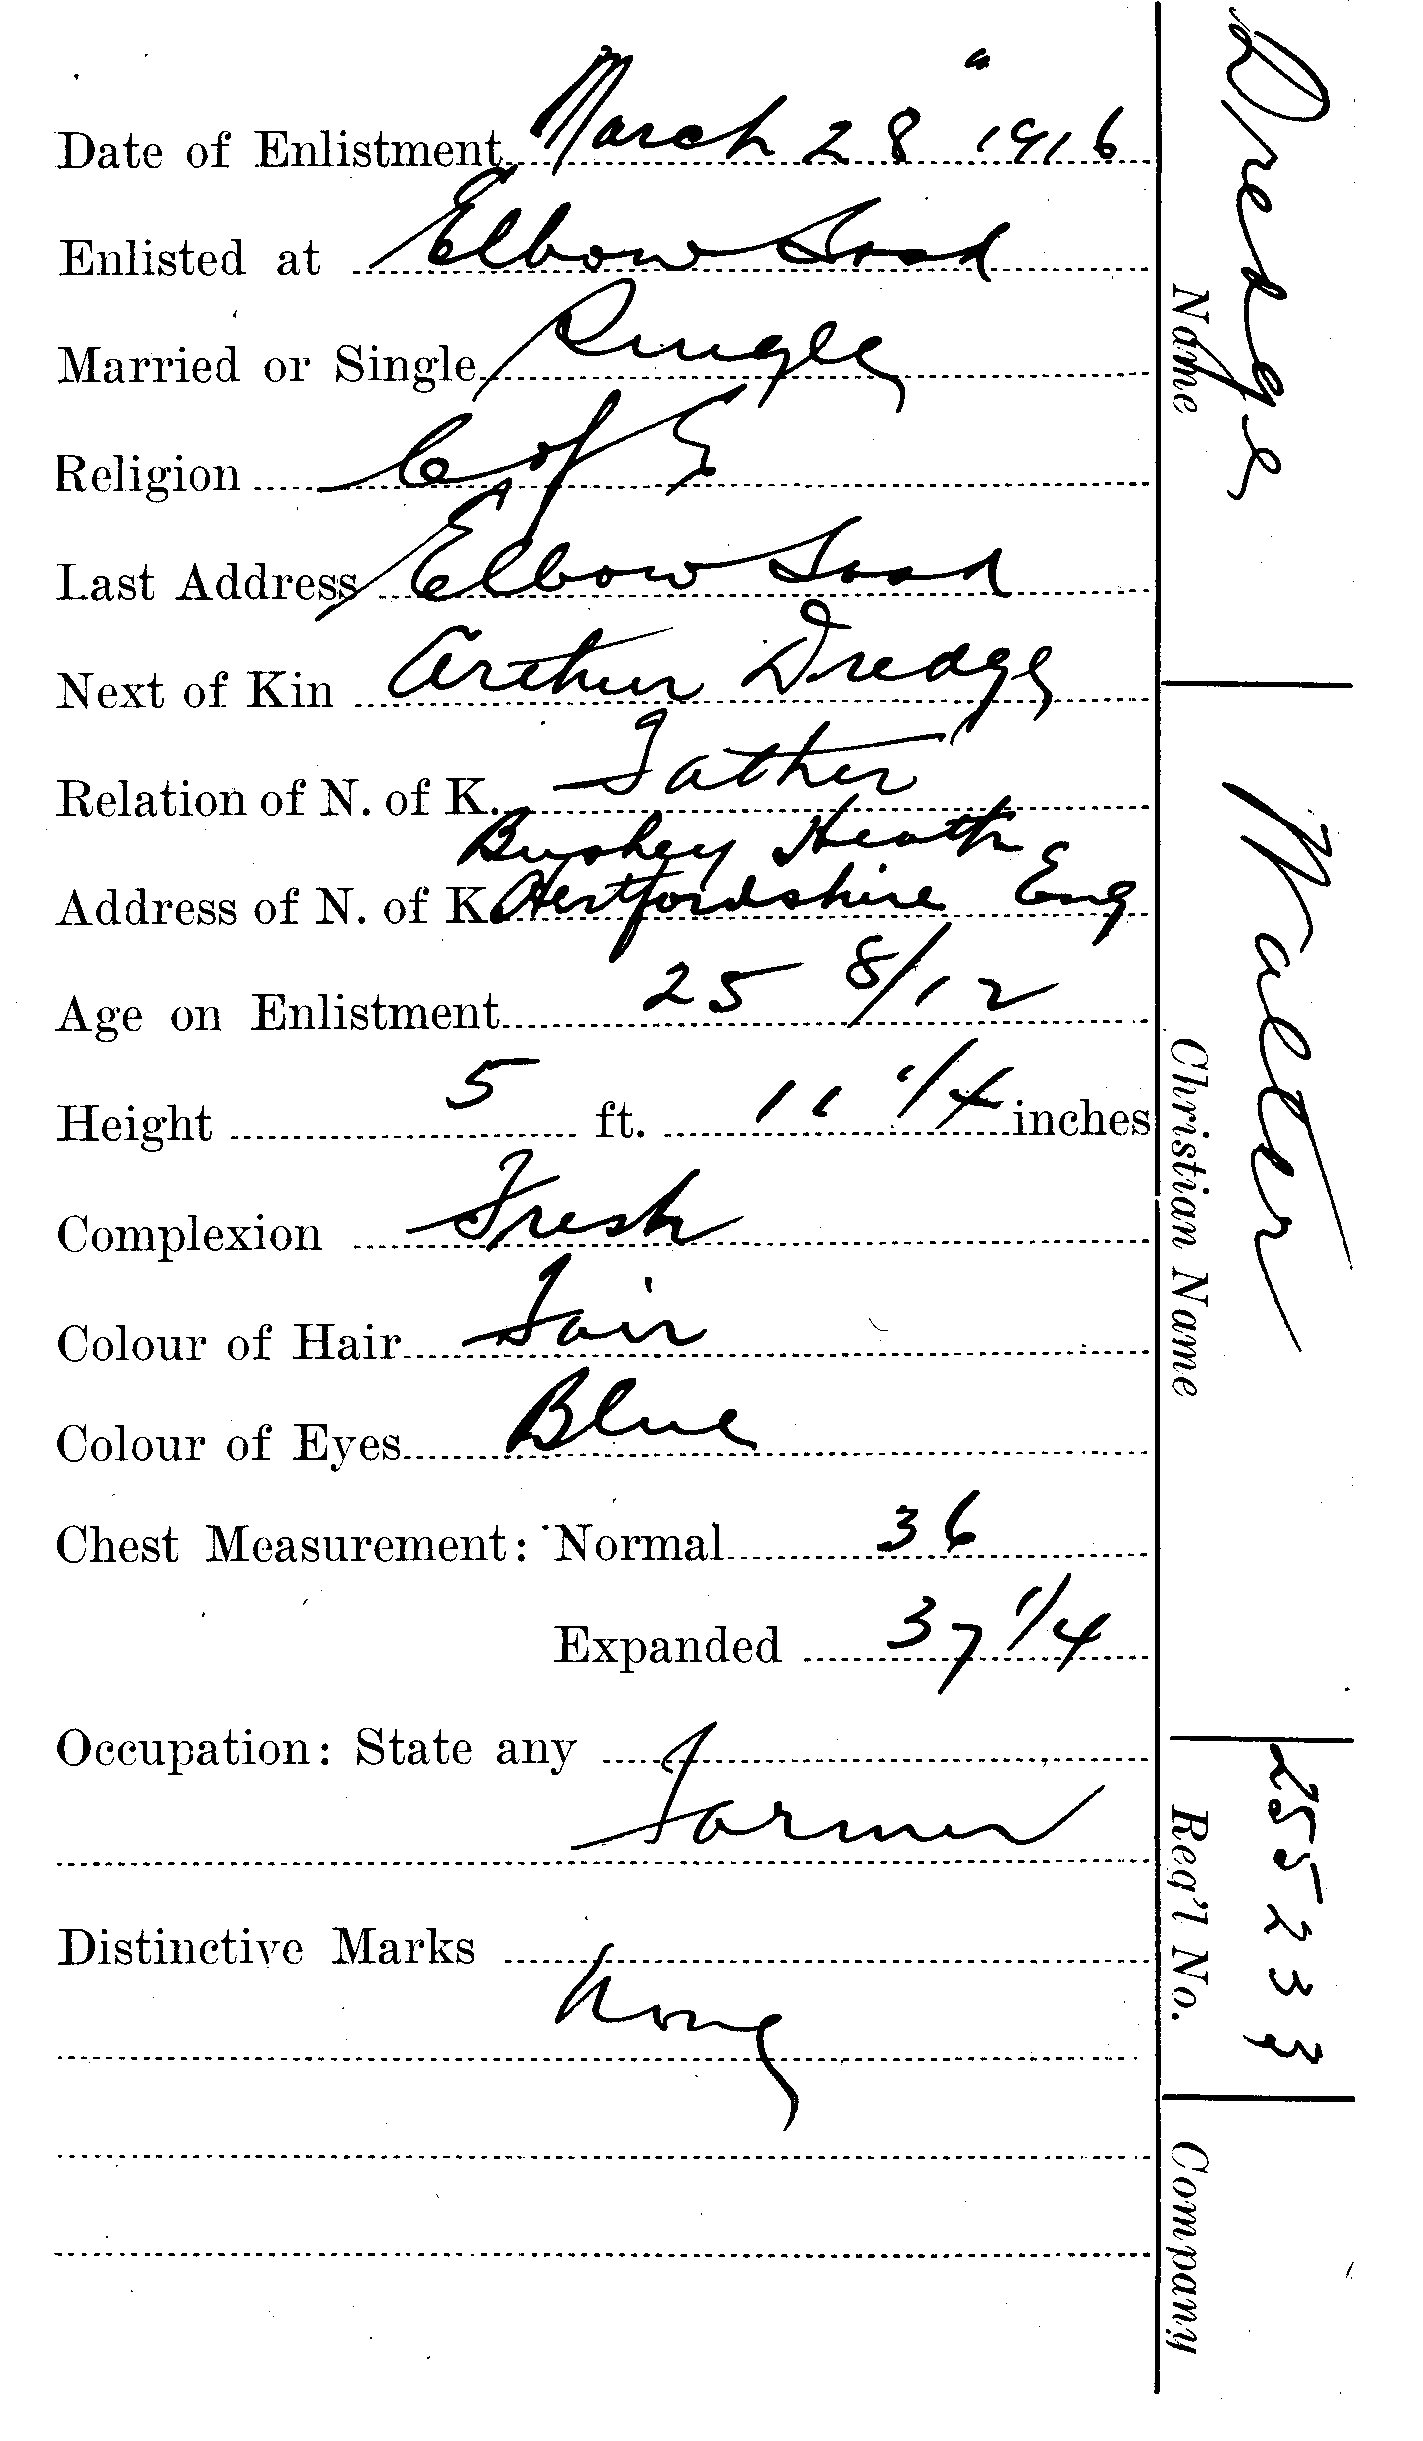 Date of Enlistment March 28 " 1916
Enlisted at Elbow Sask
Married or Single Single
Religion C of E
Last Address Elbow Sask
Next of Kin Arthur Dredge
Relation of N. of K. Father
Bushey Heath
Address of N. of K. Hertfordshire Eng
Age on Enlistment 25 8/12
Height 5 ft. 11 1/4 inches
Complexion Fresh
Colour of Hair Fair
Colour of Eyes Blue
Chest Measurement: Normal 36
Expanded 37 1/4
Occupation: State any
Farmer
Distinctive Marks
None
Dredge
Name
Walter
Christian Name
255233
Reg'l No.
Company